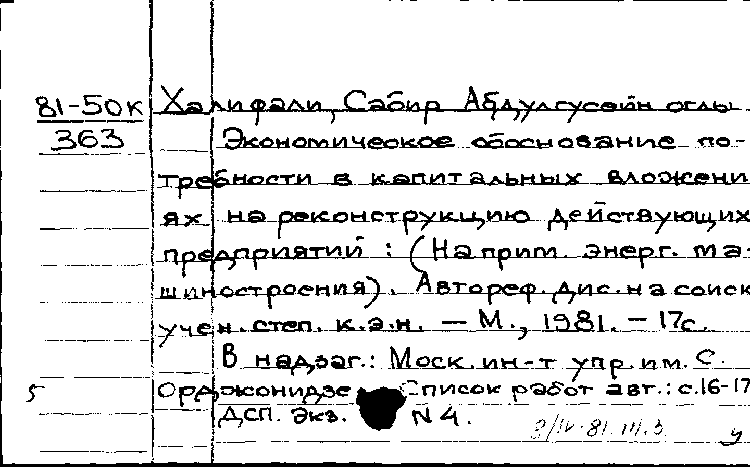 81-50К Халифали, Сабир Абдулгусейн оглы
363 Экономическое обоснование по-
требности в капитальных вложени
ях на реконструкцию действующих
предприятий : (На прим. энерг. ма-
шиностроения). Автореф. дис. на соиск
учен. степ. к.э.н. – М., 1981. – 17с.
В надзаг.: Моск. ин-т упр. им. С.
5 Орджонидзе Список работ авт.: с.16-17
ДСП. Экз. N 4.
81. III.